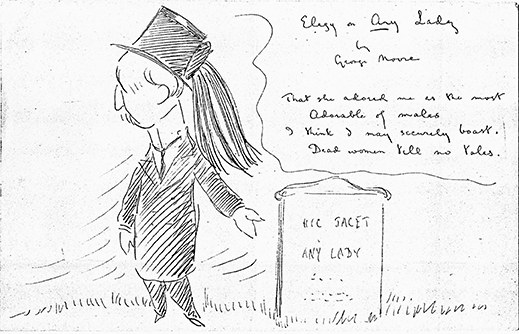 Elegy on Any Lady
by
George Moore
That she adored me as the most
Adorable of males
I think I may securely boast.
Dead women tell no tales.
HIC JACET
ANY LADY